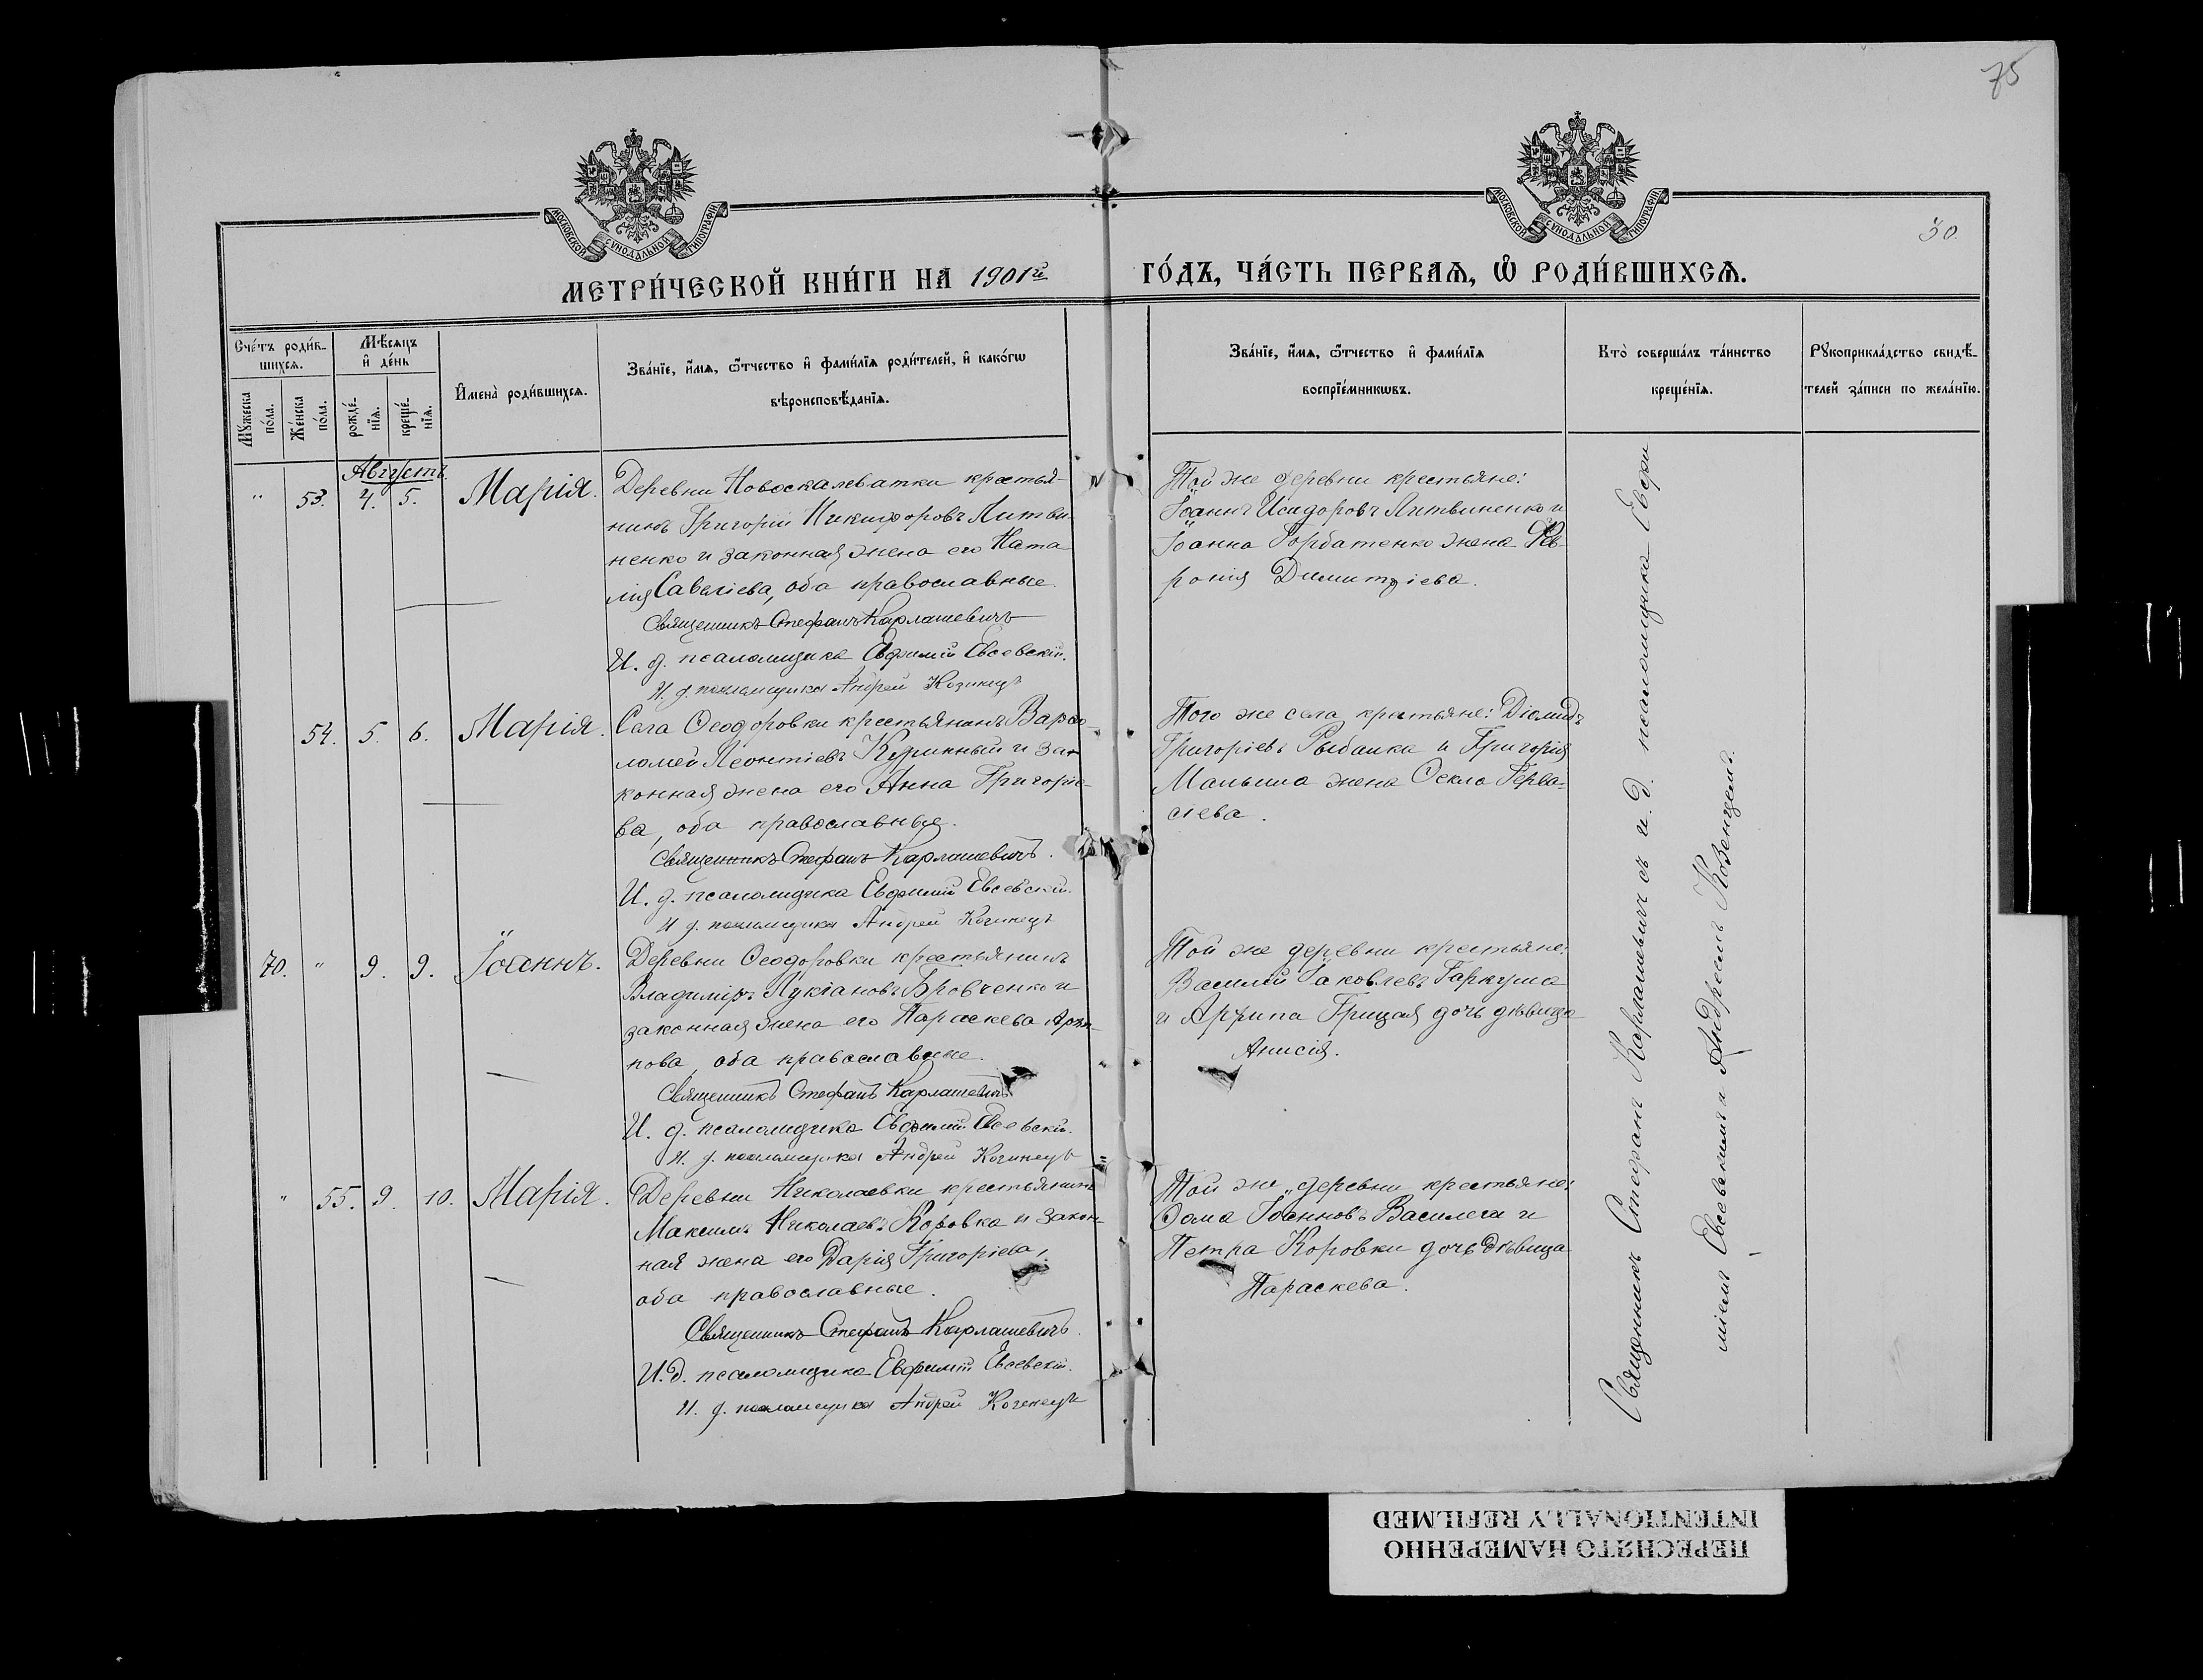 75
МОСКОВСКОЙ СѴНОДАЛЬНОЙ ТИПОГРАФІИ
МОСКОВСКОЙ СѴНОДАЛЬНОЙ ТИПОГРАФІИ
30.
МЕТРИ́ЧЕСКОЙ КНИ́ГИ НА 1901й ГО́ДЪ, ЧА́СТЬ ПЕРВАѦ, Ѽ РОДИ́ВШИХСѦ.
Сче́тъ роди́в-
шихсѧ.
Мꙋ́жеска по́ла.
Же́нска по́ла.
Мѣ́сѧцъ
и҆ де́нь
рожде́-
нїѧ.
креще́-
нїѧ.
И҆мена̀ роди́вшихсѧ.
Зва́нїе, и҆́мѧ, ѻ҆́тчество и҆ фами́лїѧ роди́телей, и҆ како́гѡ
вѣроисповѣ́данїѧ.
Зва́нїе, и҆́мѧ, ѻ҆́тчество и҆ фами́лїѧ
воспрїе́мникѡвъ.
Кто̀ соверша́лъ та́инство
креще́нїѧ.
Рꙋкоприкла́дство свидѣ́-
телей за́писи по жела́нїю.
Августъ.
" 53. 4. 5. Марія.
Деревни Новоскалеватки крестья-
нинъ Григорій Никифоровъ Литви-
ненко и законная жена его Ната-
лія Савеліева, оба православные
Священникъ Стефанъ Карлашевичъ
И. д. псаломщика Евфимій Евсевскій.
И. д. псаломщика Андрей Козинецъ
Той же деревни крестьяне:
Іоаннъ Исидоровъ Литвиненко и
Іоанна Горбатенко жена Фев-
ронія Димитріева.
54. 5. 6. Марія.
Села Ѳеодоровки крестьянинъ Варѳо-
ломей Леонтіевъ Куринный и за-
конная жена его Анна Григоріе-
ва, оба православные.
Священникъ Стефанъ Карлашевичъ.
И. д. псаломщика Евфимій Евсевскій.
И д. псаломщика Андрей Козинецъ
Того же села крестьяне: Діомидъ
Григоріевъ Рыбалка и Григорія
Малыша жена Ѳекла Герва-
сіева.
70. " 9. 9. Іоаннъ.
Деревни Ѳеодоровки крестьянинъ
Владиміръ Лукіановъ Бровченко и
законная жена его Параскева Архи-
пова, оба православные.
Священникъ Стефанъ Карлашевичъ
И. д. псаломщика Евфимій Евсевскій.
И. д. псаломщика Андрей Козинецъ
Той же деревни крестьяне:
Василій Іаковлевъ Гаркуша
и Агрипа Грицая дочь дѣвица
Анисія.
" 55. 9. 10. Марія.
Деревни Николаевки крестьянинъ
Максимъ Николаевъ Коровка и закон-
ная жена его Дарія Григоріева,
оба православные.
Священникъ Стефанъ Карлашевичъ.
И. д. псаломщика Евфимій Евсевскій.
И. д. псаломщика Андрей Козинецъ
Той же деревни крестьяне:
Ѳома Іоанновъ Василега и
Петра Коровки дочь дѣвица
Параскева.
Священникъ Стефанъ Карлашевичъ съ и. д. псаломщика
Андреемъ Козенцемъ.
ПЕРЕСНЯТО НАМЕРЕННО
INTENTIONALLY REFILMED